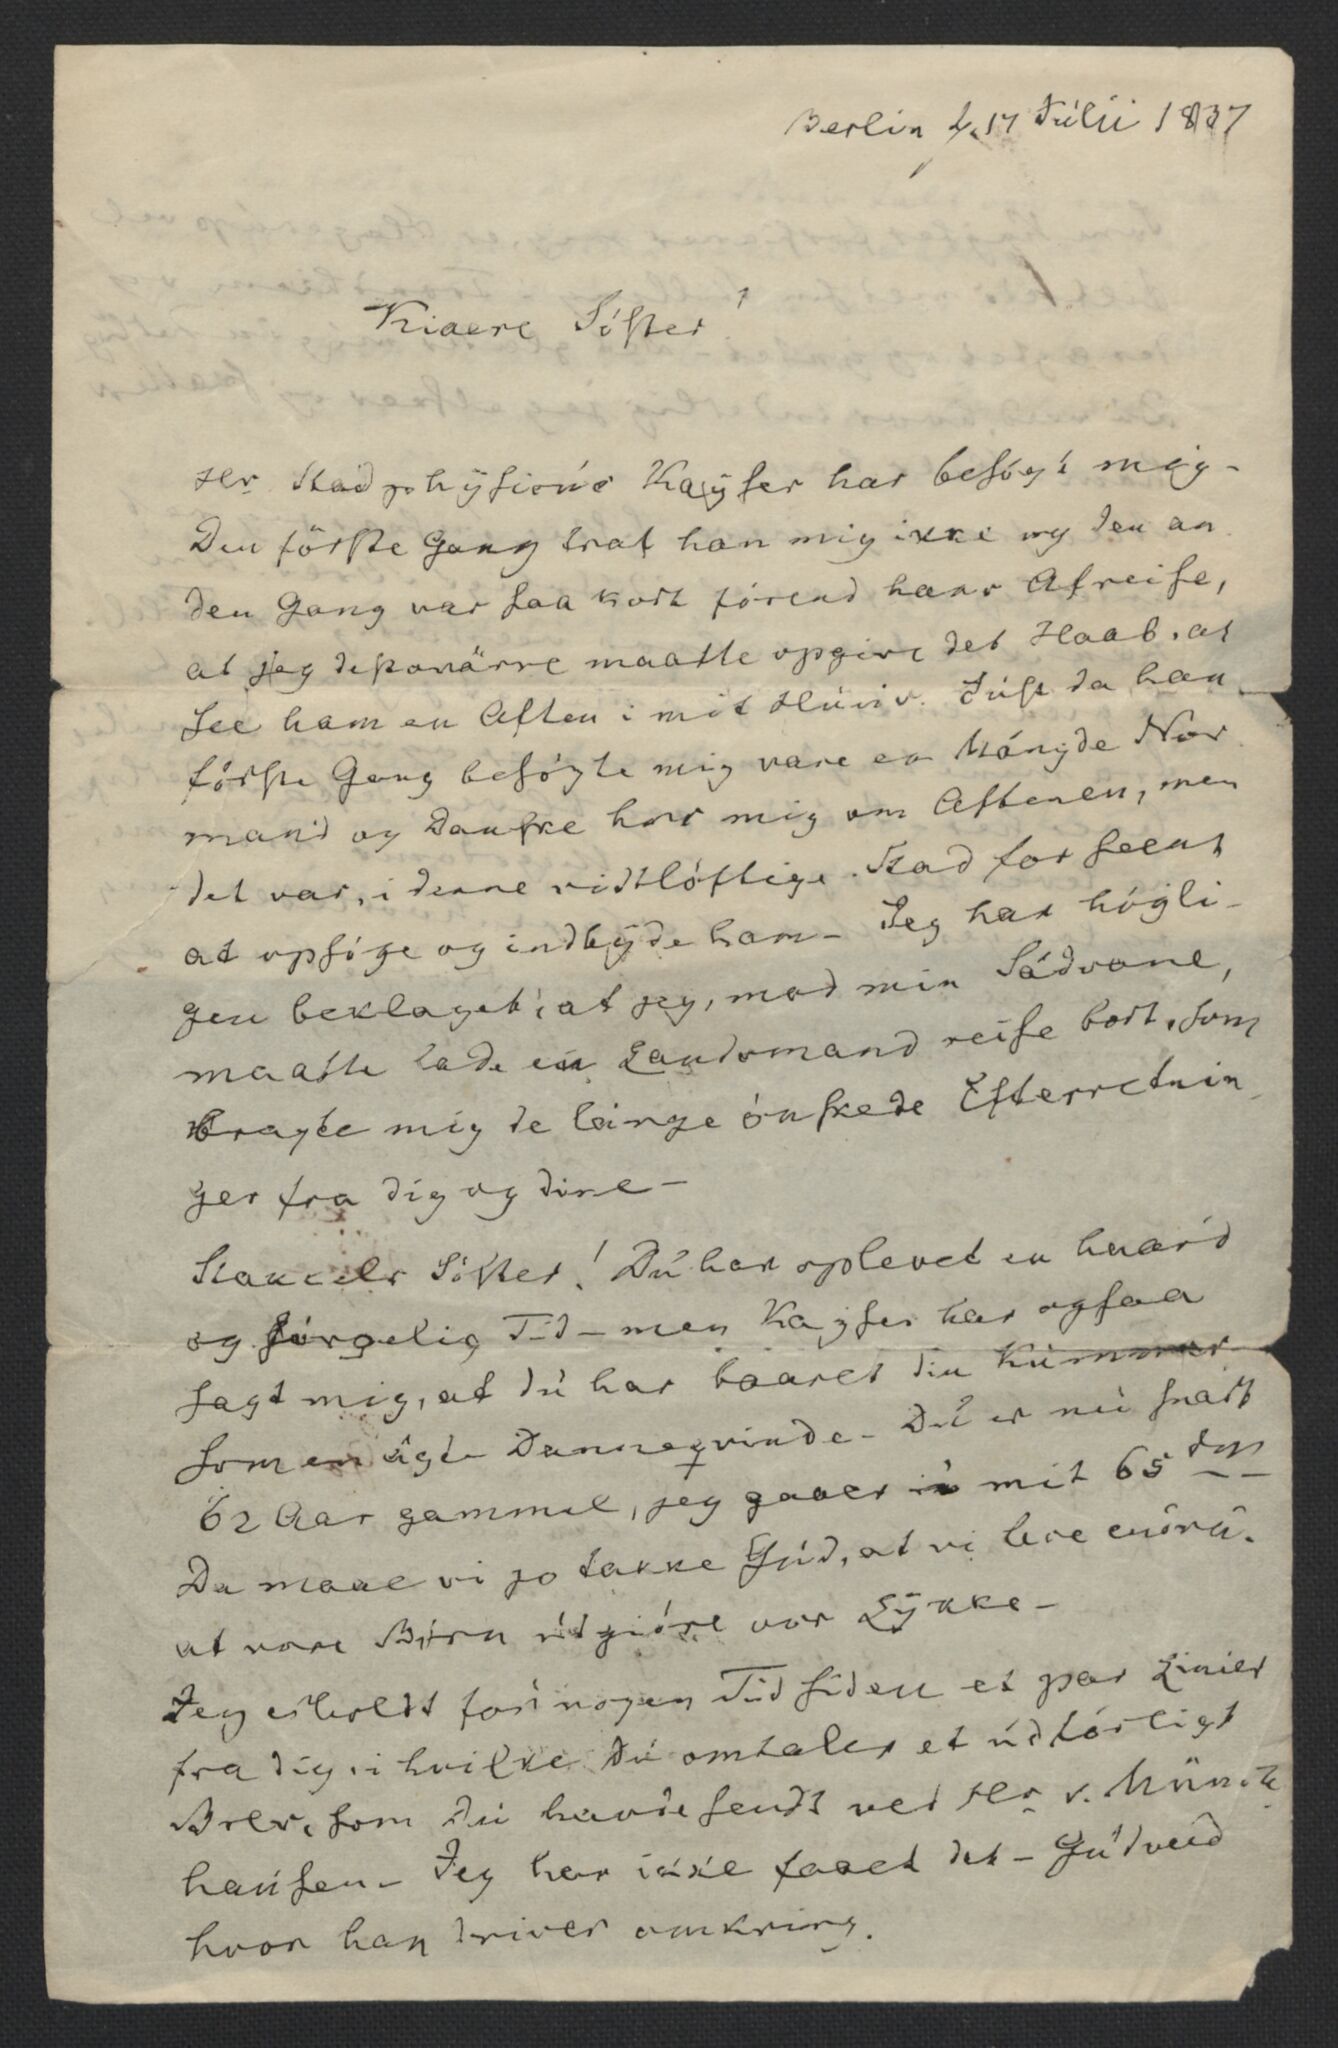 Berlin d. 17 Júlii 1837
Kiaere Söster!
Hr. Stadphÿsicús Kaÿser har besögt mig-
Den förste Gang traf han mig ikke og den an
den Gang var saa kort förend hans Afreise,
at jeg desvonärre maatte opgive det Haab, at
see ham en Aften i mit Húús. Júst da han
förste Gang besögte mig vare en Mängde Nor
mänd og Danske hos mig om Aftenen, men
det var, i denne vidtlöftige Stad for seent
at opsöge og indbÿde ham- Jeg har högli-
gen beklaget, at jeg, mod min Sädvane,
maatte lade en Landsmand reise bort, som
bragte mig de länge önskede Efterretnin
ger fra dig og dine-
Stakkels Söster! Dú har oplevet en haard
og sörgelig Tid- men Kaÿser har ogsaa
sagt mig, at dú har baaret din Kúmmer
som en ägte Danneqvinde- Dú er nú snart
62 Aar gammel, jeg gaaer i mit 65 de
Da maae vi jo takke Gúd, at vi leve endnú.
at vore Börn údgiöre vor Lÿkke-
Jeg erholdt for nogen Tid siden et par Linier
fra dig, i hvilke Dú omtaler et údförligt
Brev, som Dú havde sendt ved Hr. v. Münch
haúsen- Jeg har ikke faaet det- Gúd veed
hvor han driver omkring.